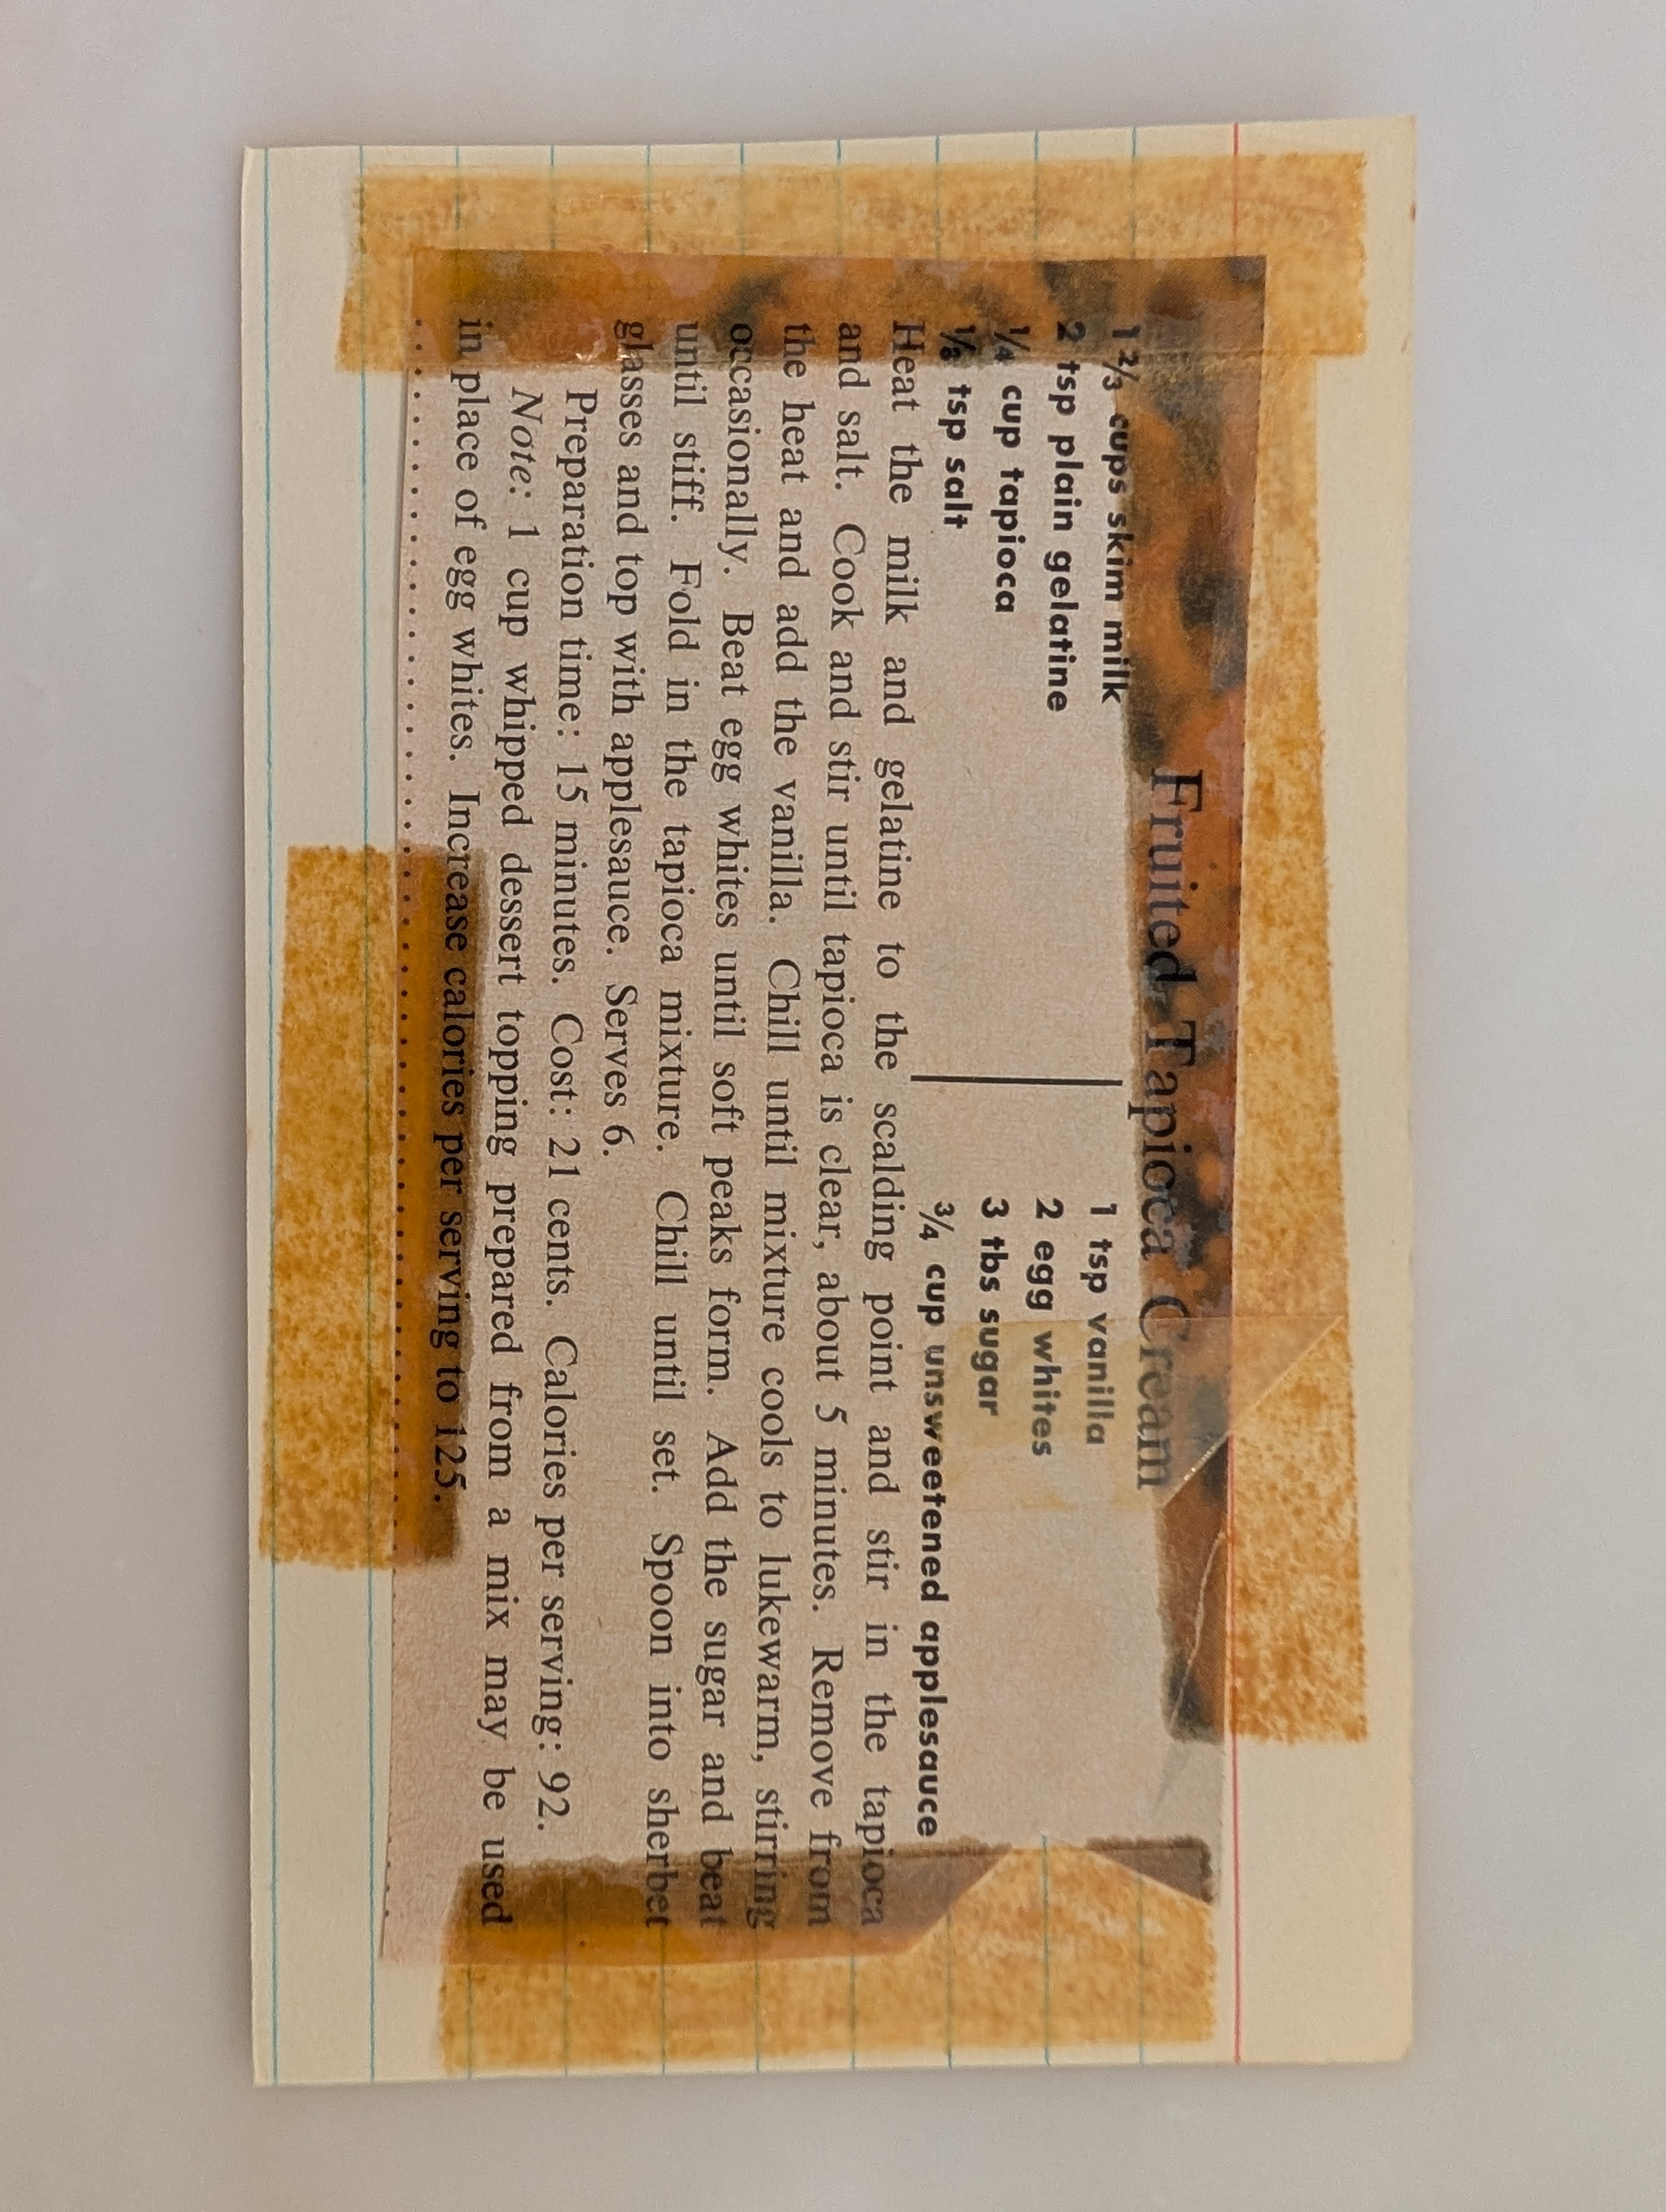 Fruited Tapioca Cream
1 2/3 cups skim milk
2 tsp plain gelatine
1/4 cup tapioca
1/8 tsp salt
1 tsp vanilla
2 egg whites
3 tbs sugar
3/4 cup unsweetened applesauce
Heat the milk and gelatine to the scalding point and stir in the tapioca
and salt. Cook and stir until tapioca is clear, about 5 minutes. Remove from
the heat and add the vanilla. Chill until mixture cools to lukewarm, stirring
occasionally. Beat egg whites until soft peaks form. Add the sugar and beat
until stiff. Fold in the tapioca mixture. Chill until set. Spoon into sherbet
glasses and top with applesauce. Serves 6.
Preparation time: 15 minutes. Cost: 21 cents. Calories per serving: 92.
Note: 1 cup whipped dessert topping prepared from a mix may be used
in place of egg whites. Increase calories per serving to 125.